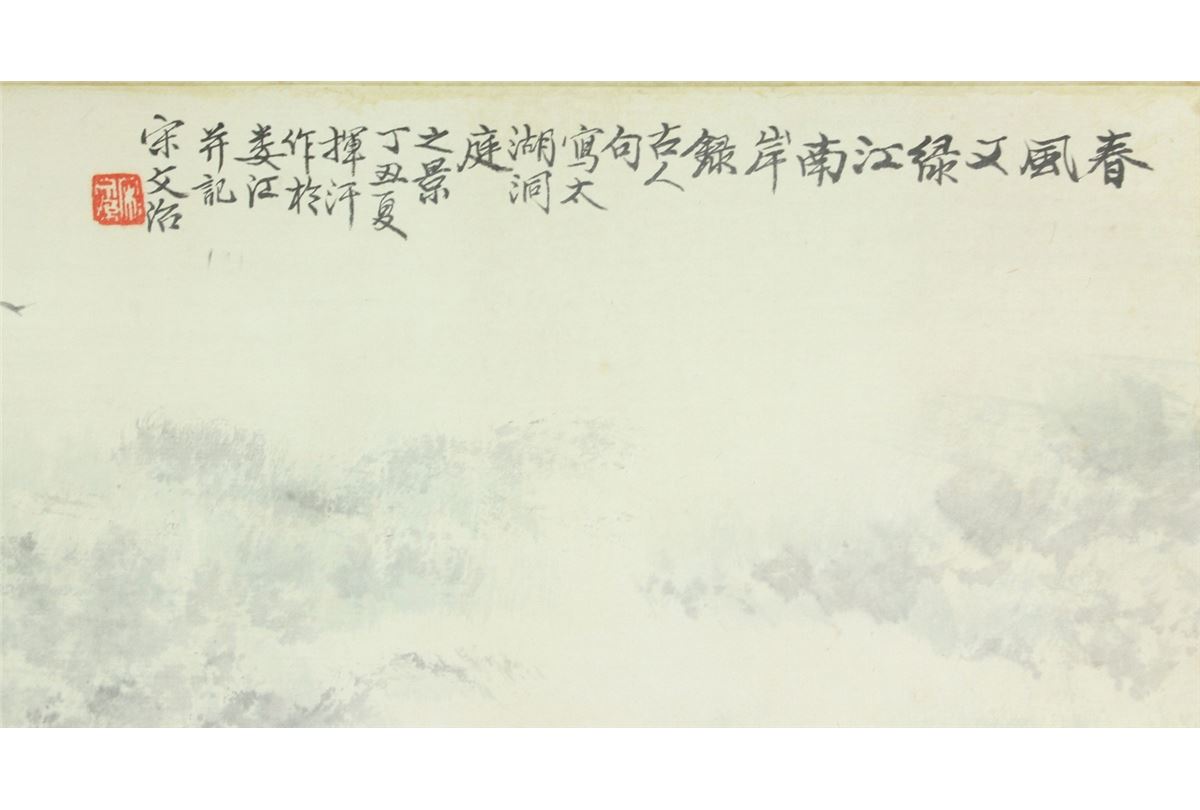 春風又绿江南岸録
古人
句
寫太
湖洞
庭
之景
丁丑夏
揮汗
作於
娄江
并記
宋文治